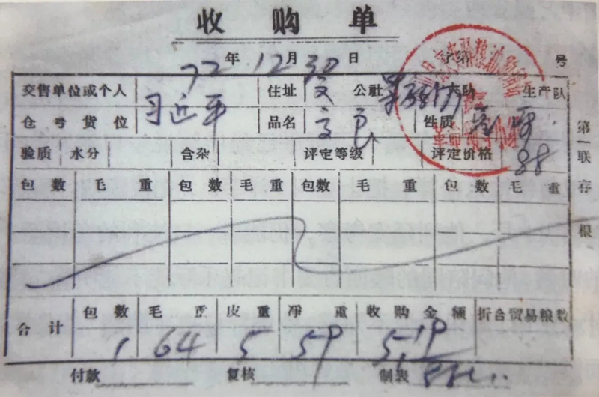 收购单
72年12月30日 号
交售单位或个人 习近平 住址 文 公社 大队 生产队
仓号货位 品名 性质
验质 水分 含杂 评定等级 评定价格 88
包数 毛重 包数 毛重 包数 毛重 包数 毛重
第一联存根
合计 包数 毛重 皮重 净重 收购金额 折合贸易粮数
1 64 5 59 5.19
付款 复核 制表